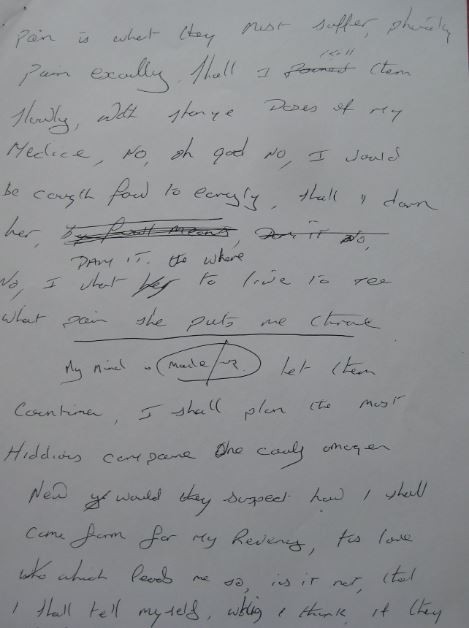 Pain is what they most suffer,
Pain excully. Shall I kill them
Slowly, with stronge Doses of my
Medice, No, oh god No, I would
be caugth fowd to eargly, shall I down
her, Dam it No,
DAM IT. the whore
No, I what her to live to see
what pain she puts me throue
My Mind is made up. Let them
Countinue, I shall plan the most
Hiddious campane One cauly
Never would they suspect how I shall
Come form for My Revenge, tis love
which leads me so, is it not, that
I shall tell myself, I think if they